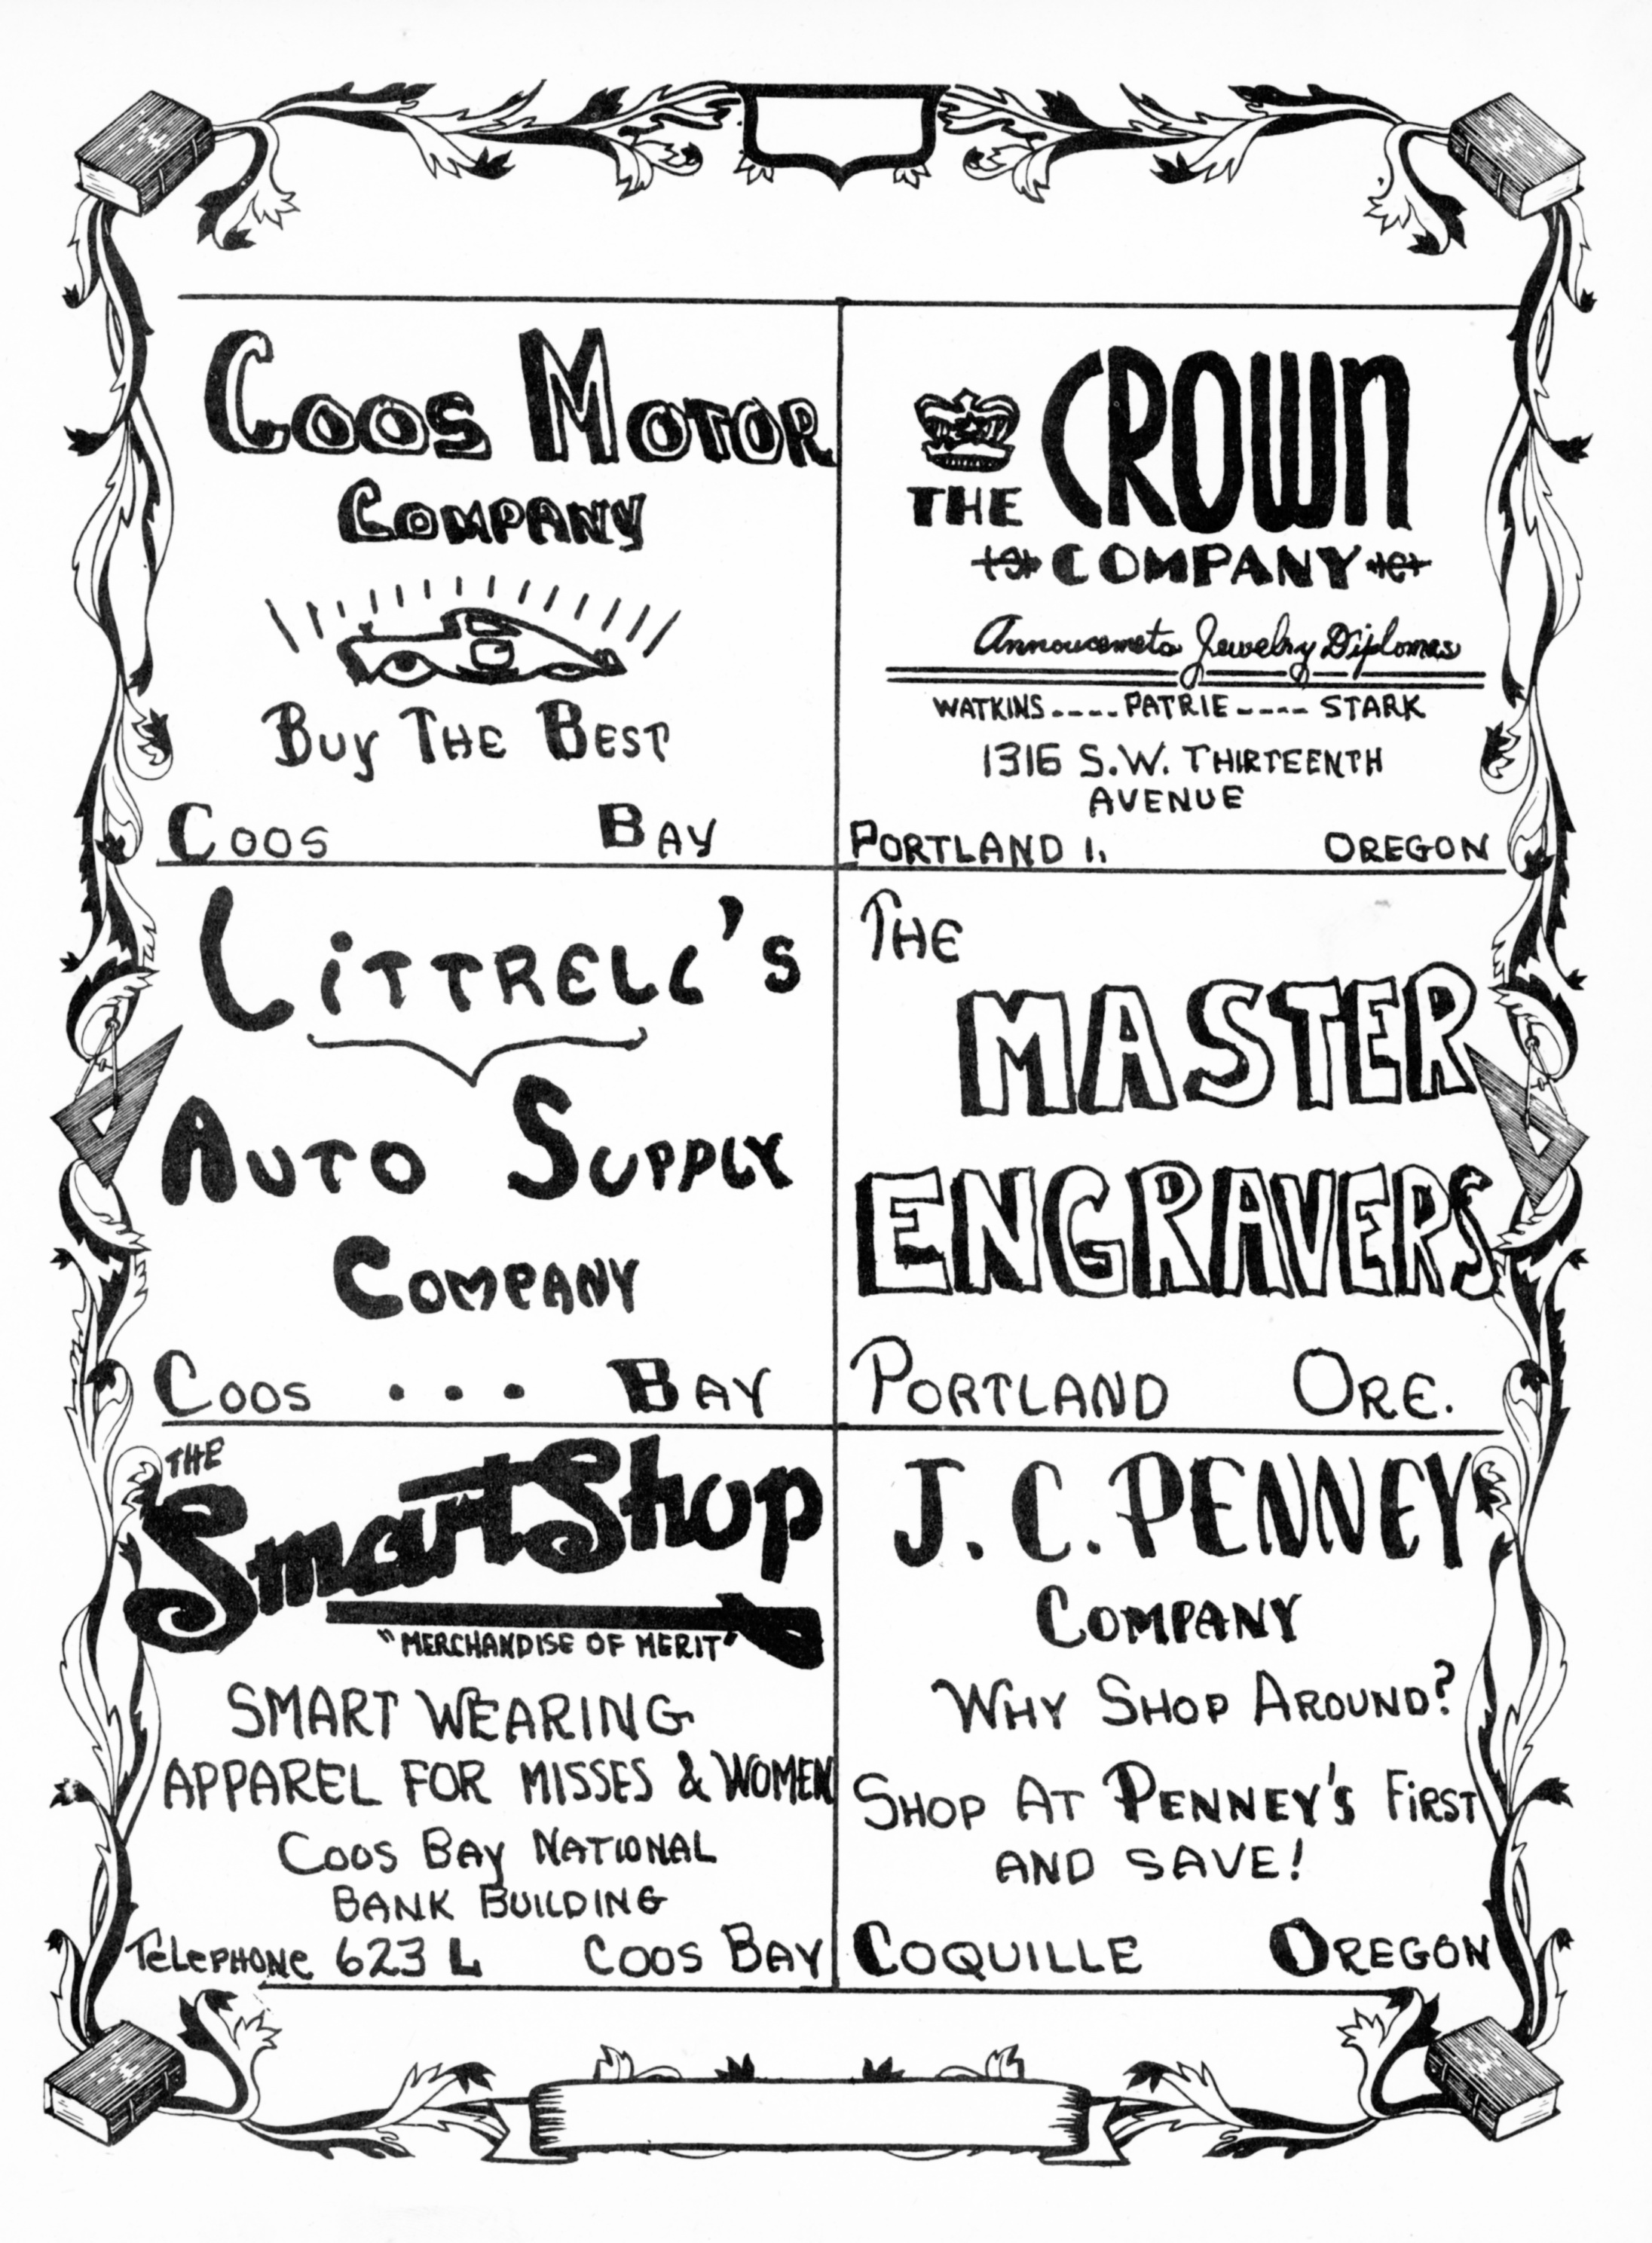 COOS MOTOR
COMPANY
BUY THE BEST
COOS BAY
THE CROWN
COMPANY
Annoucemets Jewelry Diplomas
WATKINS----PATRIE----STARK
1316 S.W. THIRTEENTH
AVENUE
PORTLAND 1, OREGON
LiTTRELL'S
AUTO SUPPLY
COMPANY
COOS ... BAY
THE
MASTER
ENGRAVERS
PORTLAND ORE.
THE
Smart Shop
"MERCHANDISE OF MERIT"
SMART WEARING
APPAREL FOR MISSES & WOMEN
COOS BAY NATIONAL
BANK BUILDING
TeLePHONe 623 L COOS BAY
J. C. PENNEY
COMPANY
WHY SHOP AROUND?
SHOP AT PENNEY'S FiRST
AND SAVE!
COQUILLE OREGON